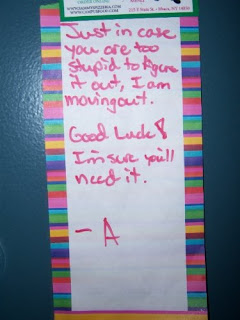 Just in case
you are too
stupid to figure
it out, I am
moving out.
Good Luck!
I'm sure you'll
need it.
- A